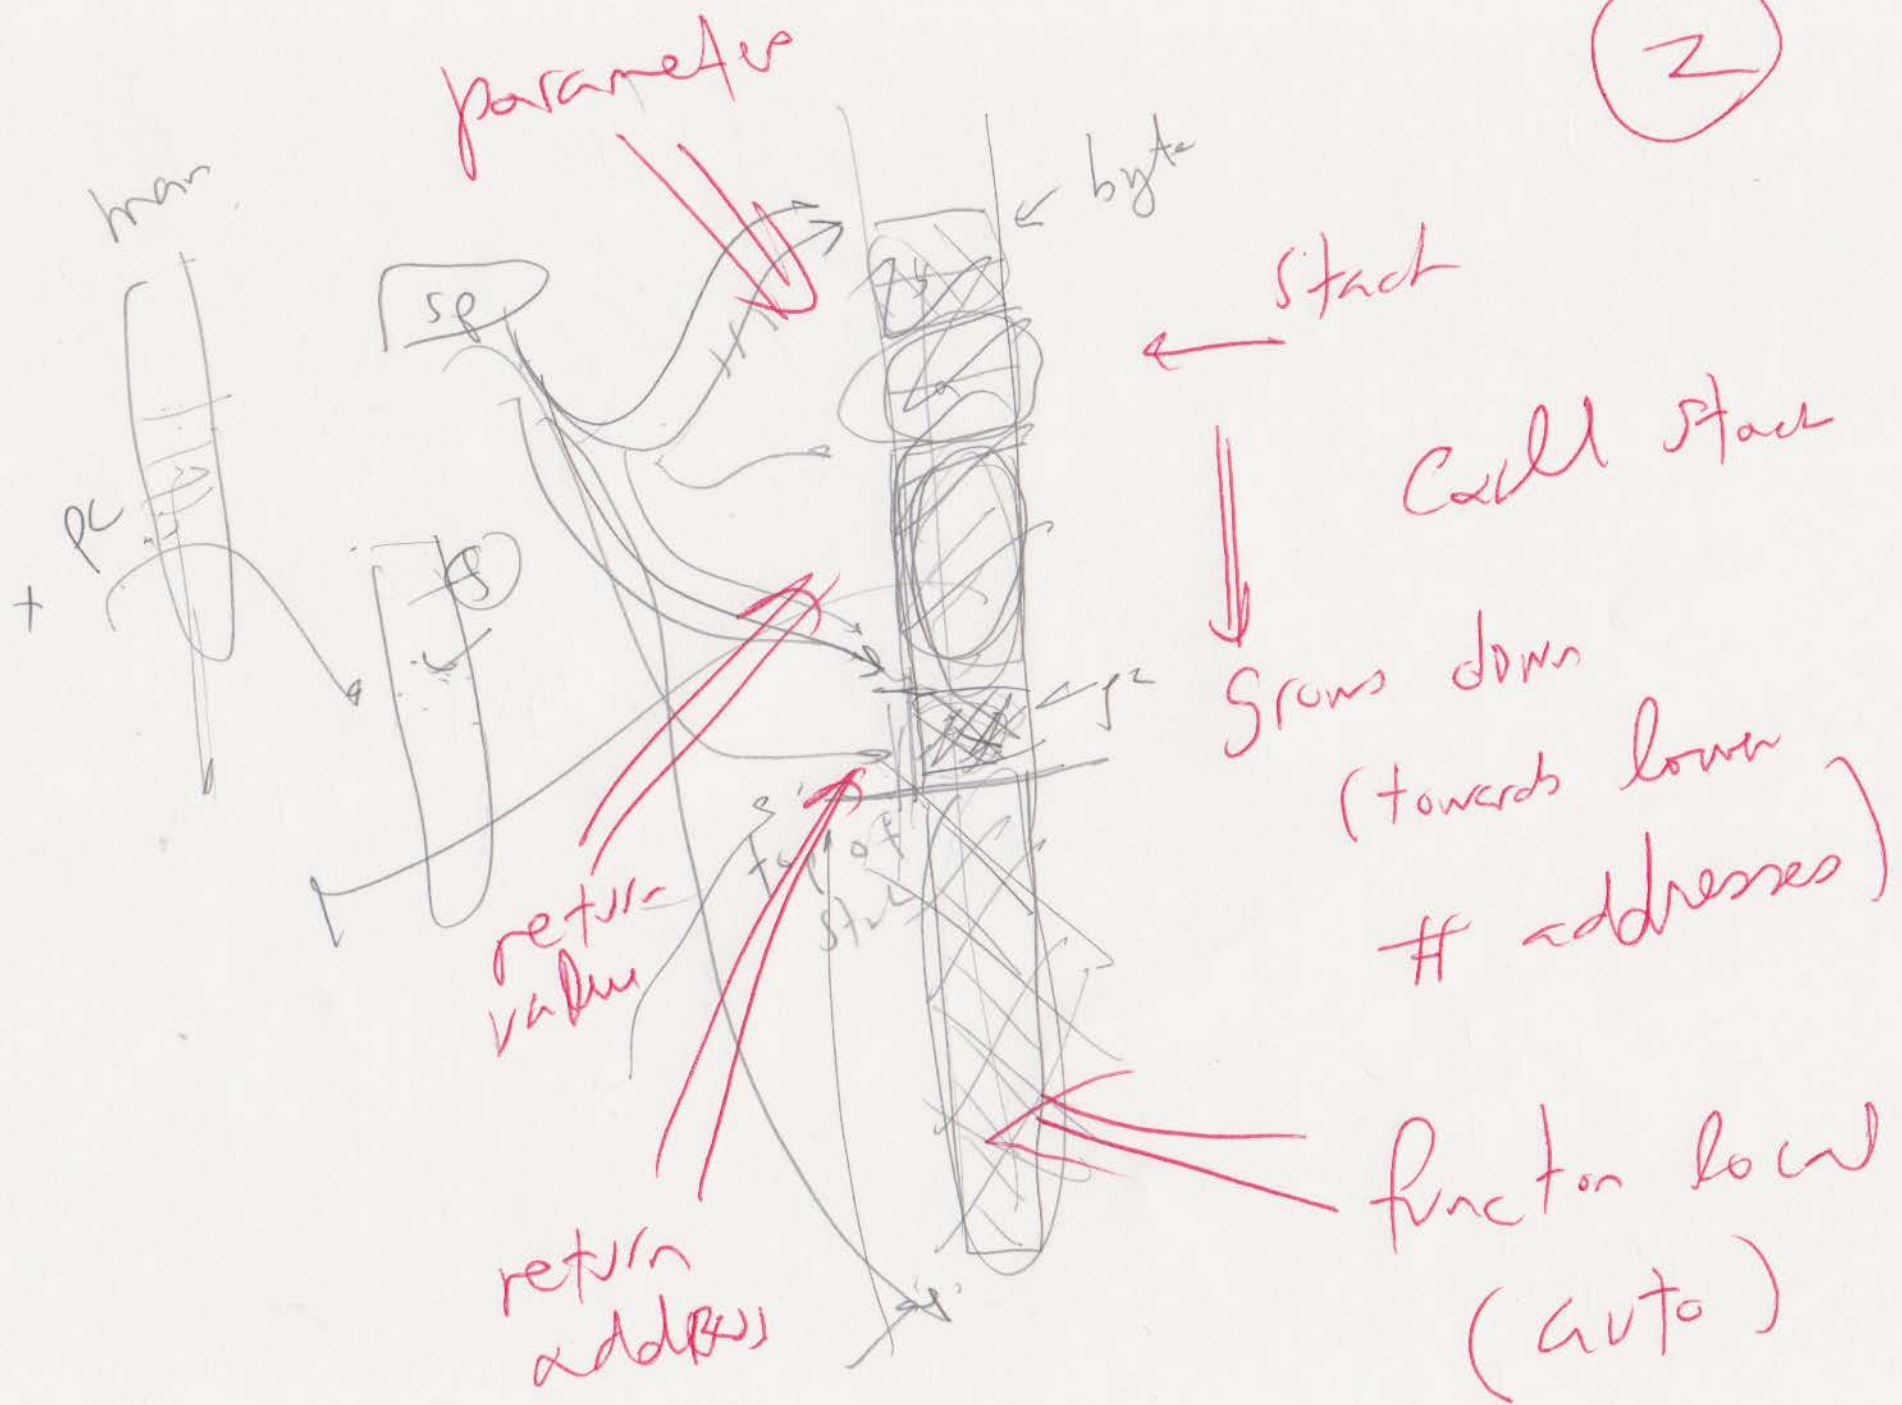 2
parameter
byte
main
sp
stack
call stack
pc
+
s
grows down
(towards lower
# addresses)
top of
stack
return
value
function local
(auto)
return
address